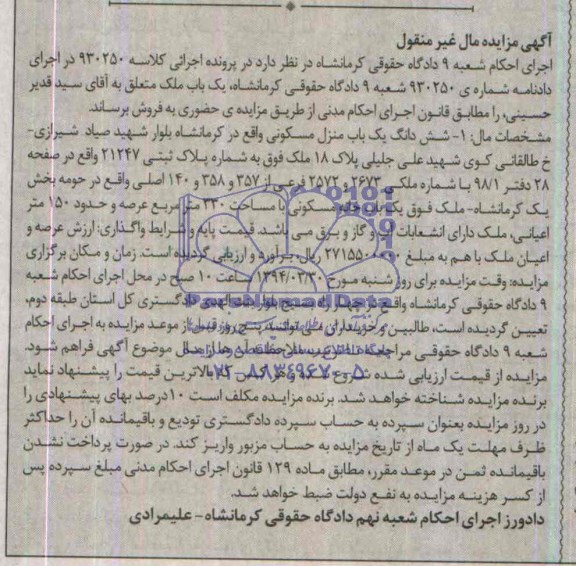 آگهی مزایده مال غیر منقول
اجرای احکام شعبه ۹ دادگاه حقوقی کرمانشاه در نظر دارد در پرونده اجرائی کلاسه ۹۳۰۲۵۰ در اجرای
دادنامه شماره ی ۹۳۰۲۵۰ شعبه ۹ دادگاه حقوقی کرمانشاه، یک باب ملک متعلق به آقای سید قدیر
حسینی، را مطابق قانون اجرای احکام مدنی از طریق مزایده ی حضوری به فروش برساند.
مشخصات مال: ۱- شش دانگ یک باب منزل مسکونی واقع در کرمانشاه بلوار شهید صیاد شیرازی-
خ طالقانی کوی شهید علی جلیلی پلاک ۱۸ ملک فوق به شماره پلاک ثبتی ۲۱۲۴۷ واقع در صفحه
۲۸ دفتر ۹۸/۱ با شماره ملک ۲۶۷۳ و ۲۵۷۲ فرعی از ۳۵۷ و ۳۵۸ و ۱۴۰ اصلی واقع در حومه بخش
یک کرمانشاه- ملک فوق یکباب خانه مسکونی با مساحت ۲۳۰ متر مربع عرصه و حدود ۱۵۰ متر
اعیانی، ملک دارای انشعابات آب و گاز و برق می باشد. قیمت پایه و شرایط واگذاری: ارزش عرصه و
اعیان ملک با هم به مبلغ ریال، برآورد و ارزیابی گردیده است. زمان و مکان برگزاری
مزایده: وقت مزایده برای روز شنبه مورخ ۱۳۹۴/۰۳/۳۰ ساعت ۱۰ صبح در محل اجرای احکام شعبه
۹ دادگاه حقوقی کرمانشاه واقع در بلوار دادگستری کل استان طبقه دوم،
تعیین گردیده است، طالبین و خریداران می توانند پنج روز قبل از موعد مزایده به اجرای احکام
شعبه ۹ دادگاه حقوقی مراجعه تا ترتیب ملاحظه آن ها از مال موضوع آگهی فراهم شود.
مزایده از قیمت ارزیابی شده شروع شده و هر کس که بالاترین قیمت را پیشنهاد نماید
برنده مزایده شناخته خواهد شد. برنده مزایده مکلف است ۱۰ درصد بهای پیشنهادی را
در روز مزایده بعنوان سپرده به حساب سپرده دادگستری تودیع و باقیمانده آن را حداکثر
ظرف مهلت یک ماه از تاریخ مزایده به حساب مزبور واریز کند. در صورت پرداخت نشدن
باقیمانده ثمن در موعد مقرر، مطابق ماده ۱۲۹ قانون اجرای احکام مدنی مبلغ سپرده پس
از کسر هزینه مزایده به نفع دولت ضبط خواهد شد.
دادورز اجرای احکام شعبه نهم دادگاه حقوقی کرمانشاه- علیمرادی
۰۲۱-۸۸۳۴۹۶۷۰-۵